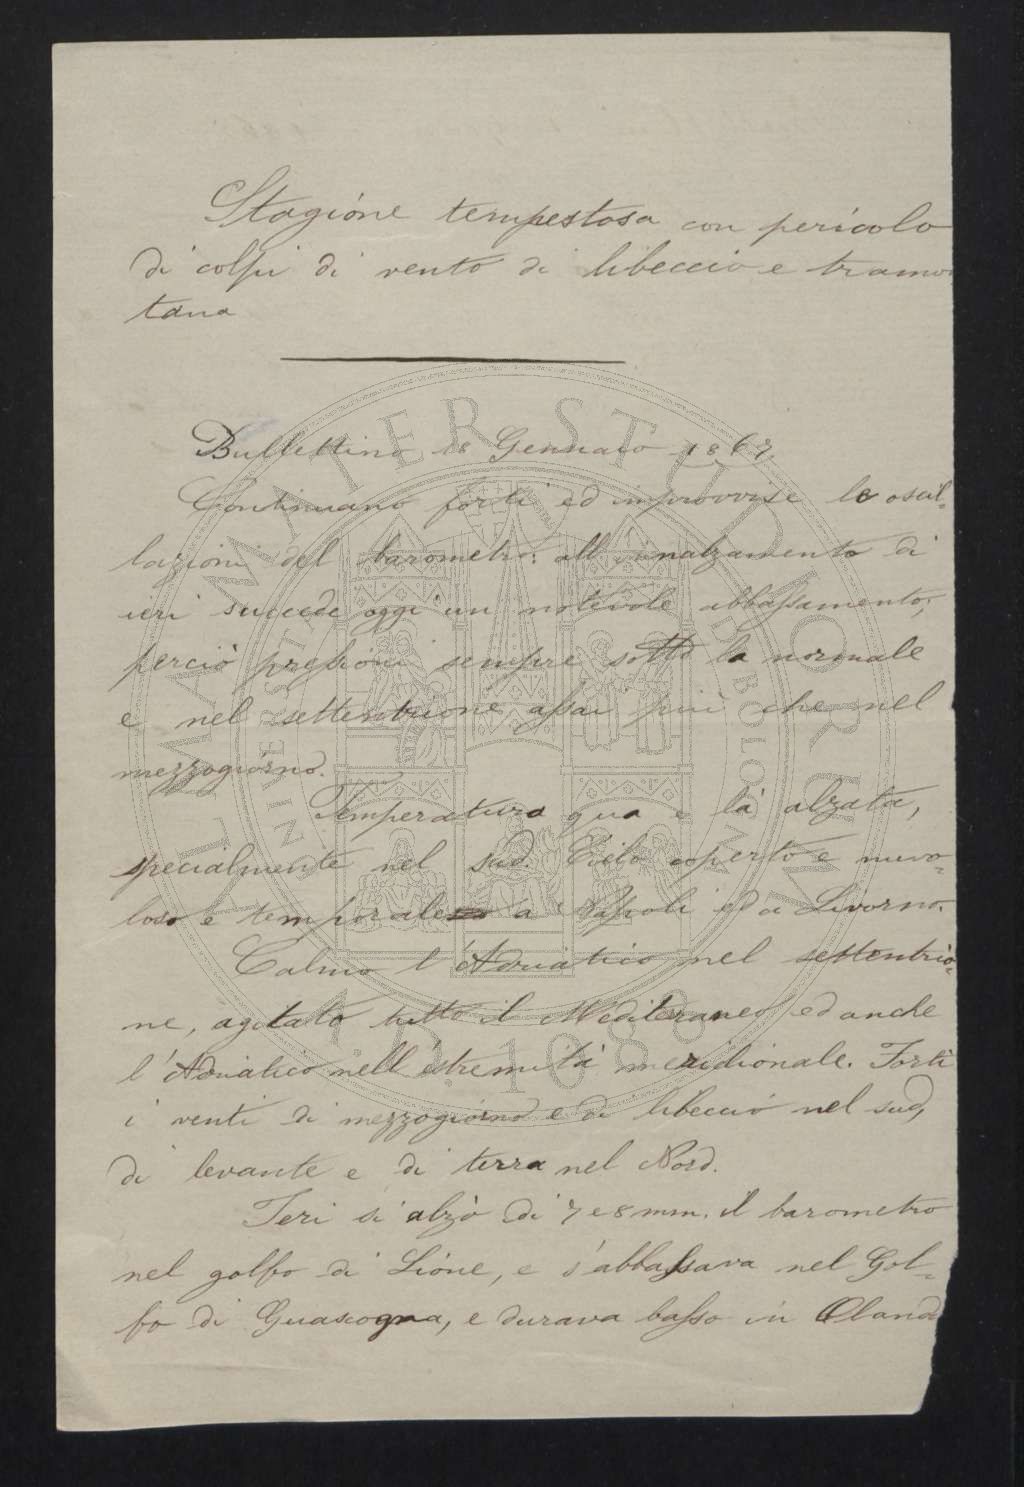 Stagione tempestosa con pericolo
di colpi di vento di libeccio e tramon
tana
Bullettino 18 Gennaio 1867
Continuano forti ed improvvise le oscil-
lazioni del barometro: all'innalzamento di
ieri succede oggi un notevole abbassamento;
perciò pressioni sempre sotto la normale
e nel settentrione assai più che nel
mezzogiorno.
Temperatura qua e là alzata,
specialmente nel sud. Cielo coperto e nuvo-
loso e temporale a Napoli ed a Livorno.
Calmo l'Adriatico nel settentrio-
ne, agitato tutto il Mediteraneo ed anche
l'Adriatico nell'estremità meridionale. Forti
i venti di mezzogiorno e di libeccio nel sud,
di levante e di terra nel Nord.
Ieri si alzò di 7 e 8 mm. il barometro
nel golfo di Lione, e s'abbassava nel Gol-
fo di Guascogna, e durava basso in Oland
ALMA MATER STUDIORUM
A.D. 1088